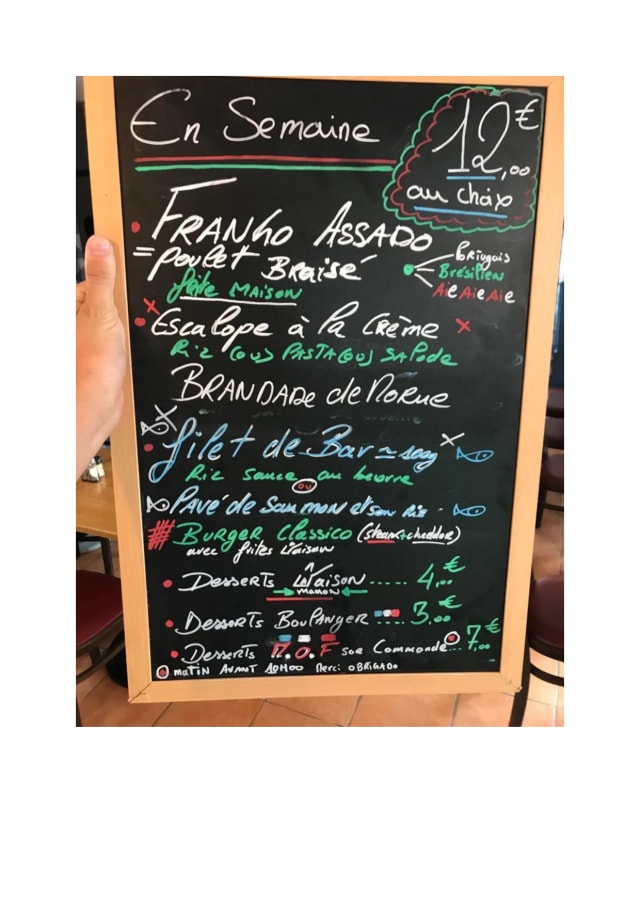 En Semaine
12,00 €
au choix
FRANGO ASSADO
= poulet BRAISÉ
Portugais
Brésilien
Aie Aie Aie
fâite MAISON
Escalope à la Crème
Riz (ou) PASTA (ou) SALADE
BRANDADE de MORUE
filet de Bar ≃ 500g
Riz sauce au beurre
ou
Pavé de Saumon et son Riz
BURGER Classico (steak+cheddar)
avec frites Maison
Desserts Maison ..... 4,00 €
Maison
Desserts Boulanger ..... 3,00 €
Desserts M.O.F sur Commande ... 7,00 €
MATIN AVANT 10H00 Merci OBRIGADO